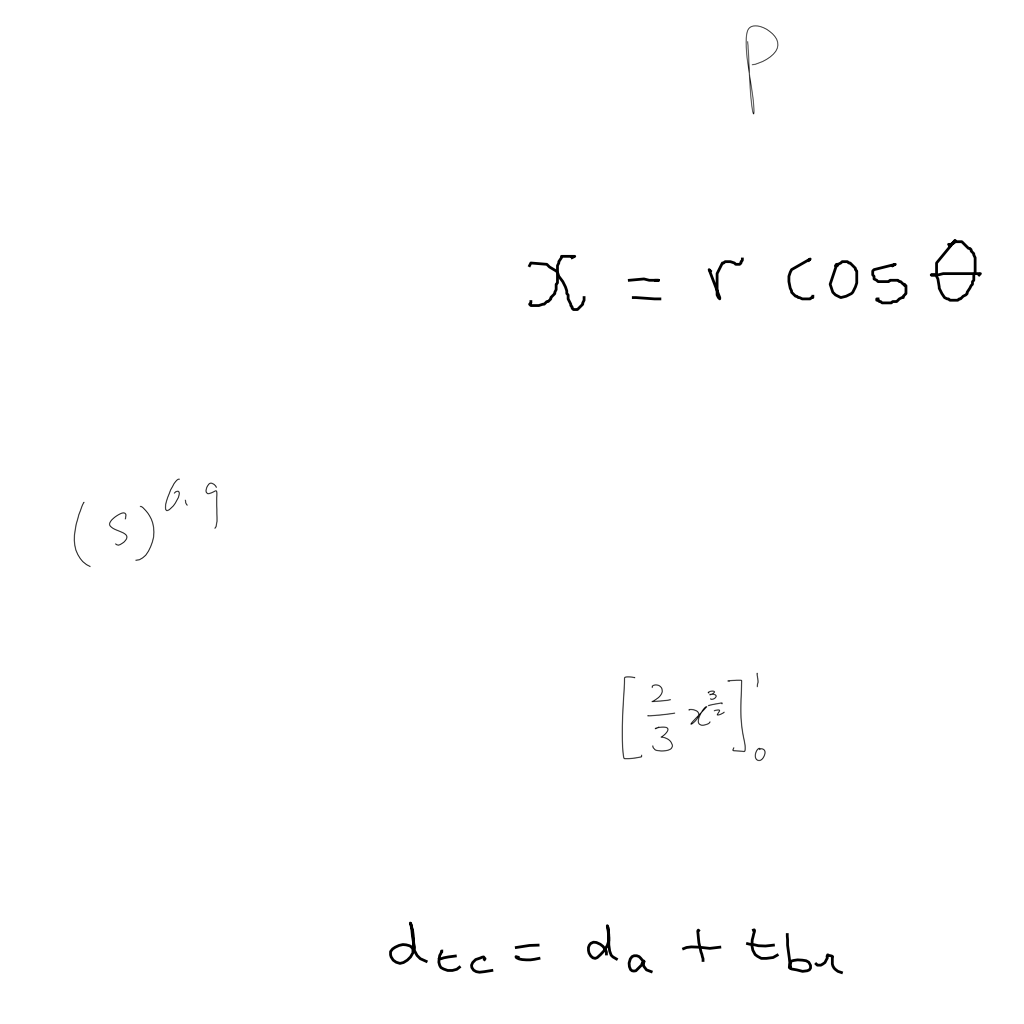 P
x = r cos θ
(s)^{0.9}
[\frac{2}{3} x^{\frac{3}{2}}]_0^1
d_{tc} = d_a + t_{br}